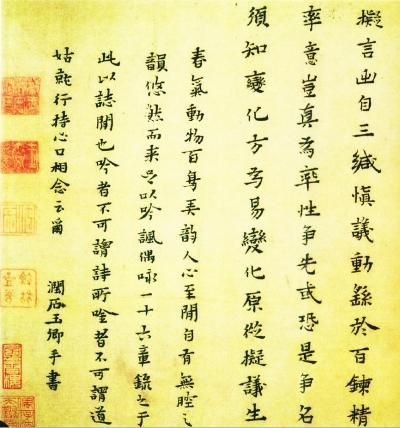 擬言出自三緘慎議動繇於百鍊精
率意豈真為率性争先或恐是争名
須知變化方為易變化原從擬議生
春氣動物百鳥弄韵人心至閒自有無腔之
韻悠然而来以吟諷偶咏一十六章錄之于
此以誌閒也吟者不可謂詩所唫者不可謂道
姑就行持心口相念云爾
潤石玉卿手書